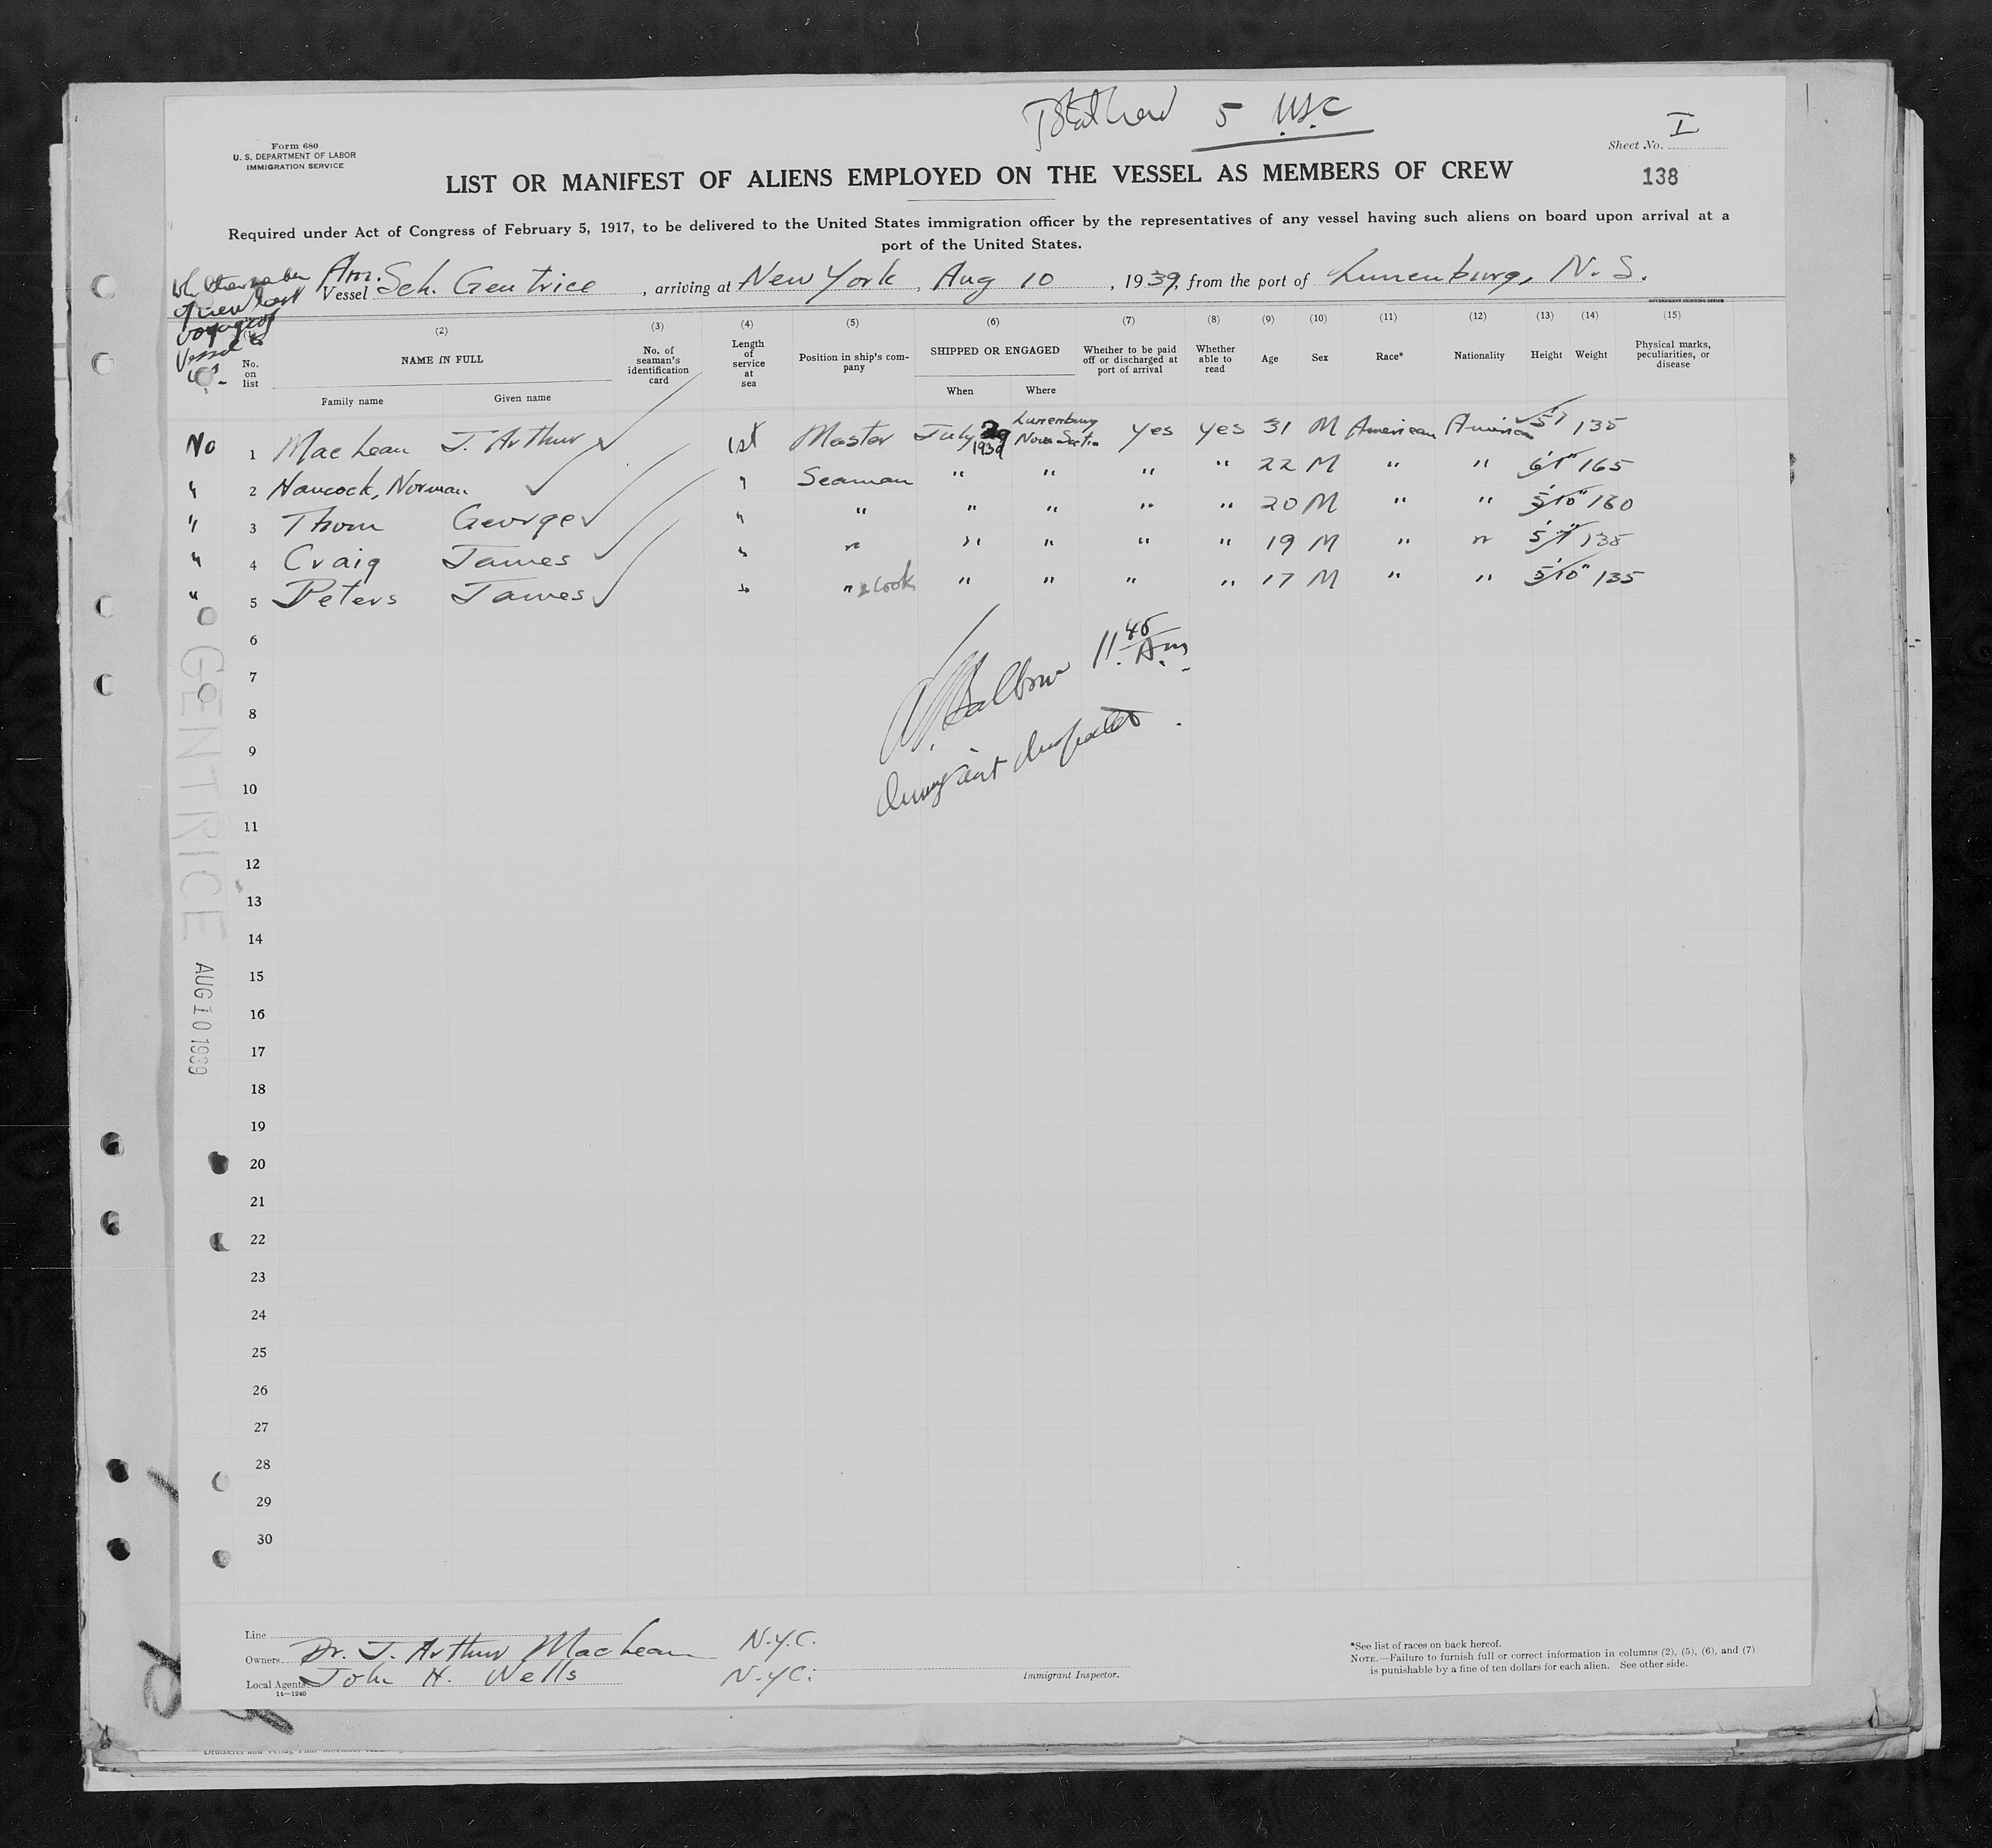 5 USC
Form 680
U. S. DEPARTMENT OF LABOR
IMMIGRATION SERVICE
Sheet No. I
LIST OR MANIFEST OF ALIENS EMPLOYED ON THE VESSEL AS MEMBERS OF CREW
138
Required under Act of Congress of February 5, 1917, to be delivered to the United States immigration officer by the representatives of any vessel having such aliens on board upon arrival at a
port of the United States.
Vessel Am. Sch. Gentrice, arriving at New York, Aug 10, 1939, from the port of Lunenburg, N. S.
Whether member
of crew last
voyage of
Vessel to
U.S.
GOVERNMENT PRINTING OFFICE
(2) (3) (4) (5) (6) (7) (8) (9) (10) (11) (12) (13) (14) (15)
No. on list NAME IN FULL Family name Given name No. of seaman's identification card Length of service at sea Position in ship's company SHIPPED OR ENGAGED When Where Whether to be paid off or discharged at port of arrival Whether able to read Age Sex Race* Nationality Height Weight Physical marks, peculiarities, or disease
No 1 MacLean J. Arthur 1st Master July 29 1939 Lunenburg Nova Scotia yes yes 31 M American American 5'7 135
" 2 Hancock, Norman " Seaman " " " " 22 M " " 6'1" 165
" 3 Thom George " " " " " " 20 M " " 5'10" 160
" 4 Craig James " " " " " " 19 M " " 5'7" 135
" 5 Peters James " " & Cook " " " " 17 M " " 5'10" 135
6
7
8
9
10
11
12
13
14
15
16
17
18
19
20
21
22
23
24
25
26
27
28
29
30
11.45 A.m.
GENTRICE
AUG 10 1939
Line
Owners Dr. J. Arthur MacLean N.Y.C.
Local Agents John H. Wells N.Y.C.
14—1240
Immigrant Inspector.
*See list of races on back hereof.
NOTE.—Failure to furnish full or correct information in columns (2), (5), (6), and (7)
is punishable by a fine of ten dollars for each alien. See other side.